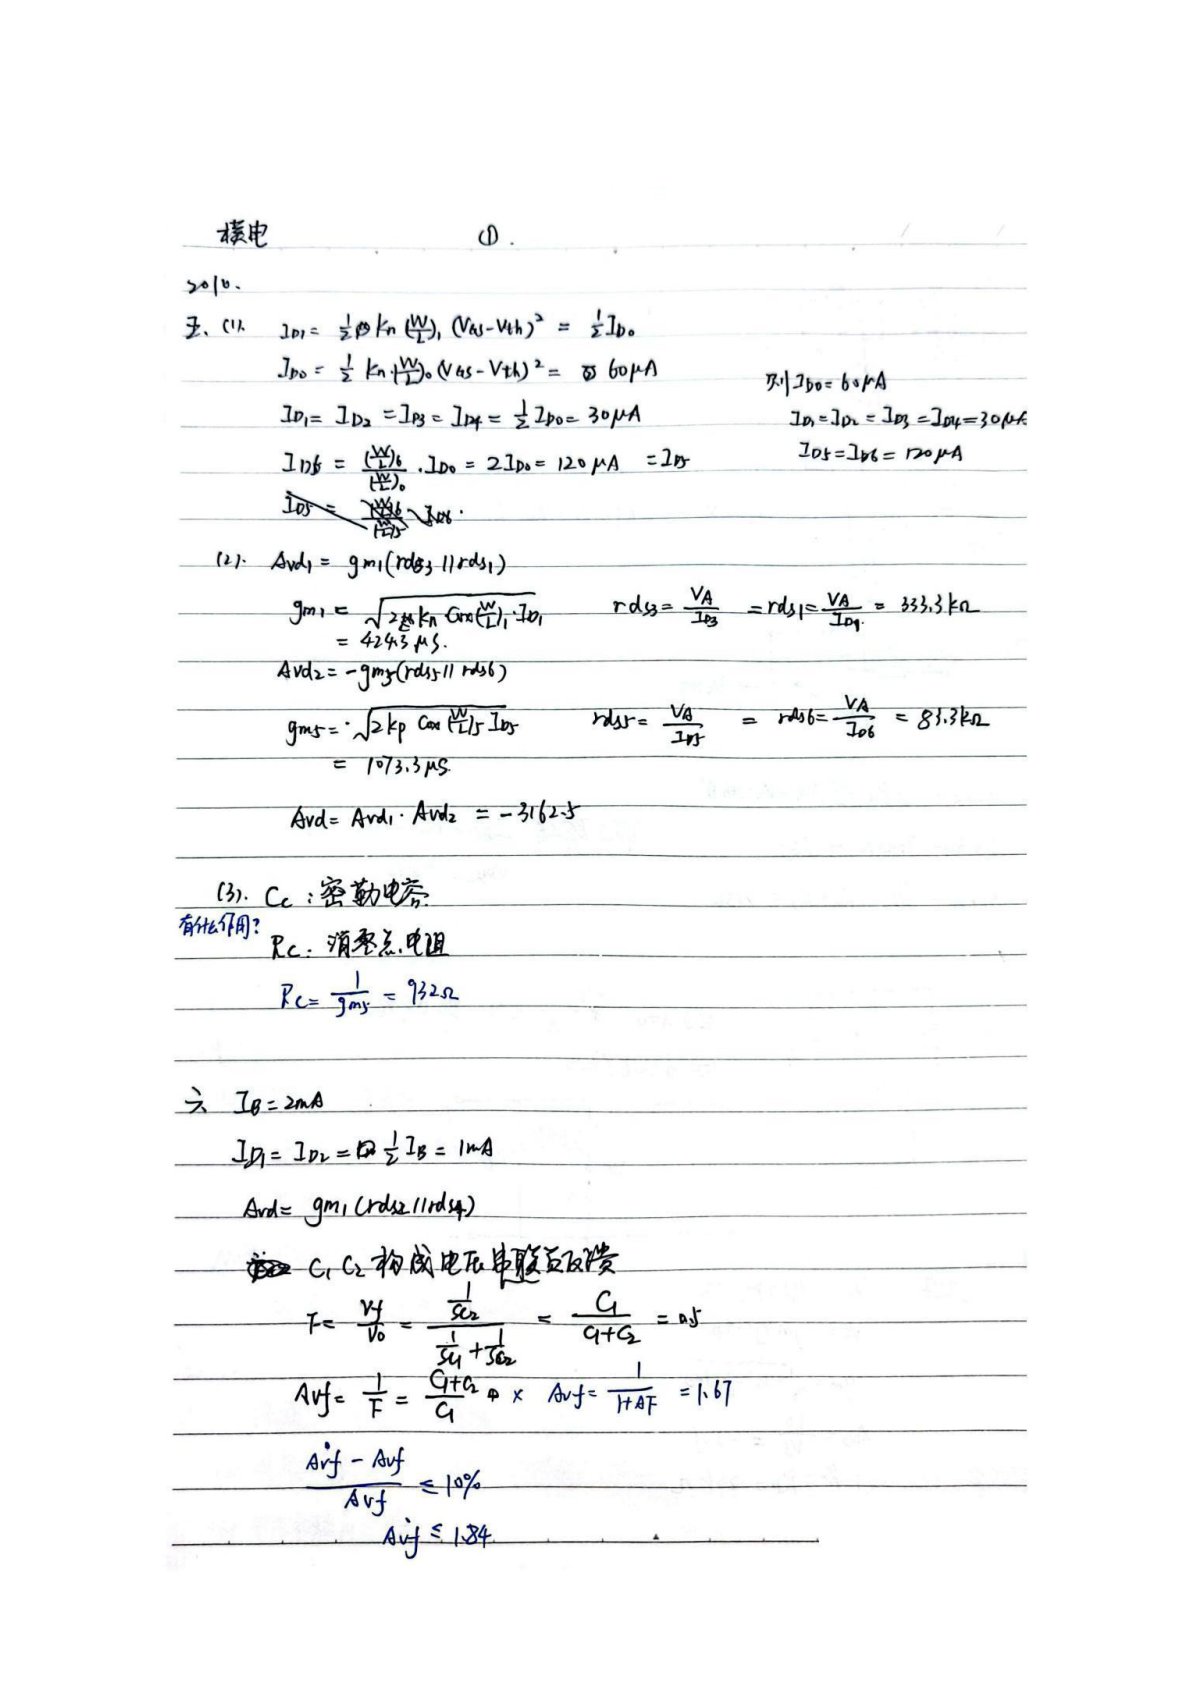 模电 ①.
2010.
五、(1). I_D1 = ½ Kn (W/L)₁ (V_GS-Vth)² = ½ I_D0
I_D0 = ½ Kn·(W/L)₀ (V_GS-Vth)² = 60μA
则 I_D0 = 60μA
I_D1 = I_D2 = I_D3 = I_D4 = ½ I_D0 = 30μA
I_D1 = I_D2 = I_D3 = I_D4 = 30μA
I_D6 = (W/L)₆/(W/L)₀ · I_D0 = 2I_D0 = 120μA = I_D5
I_D5 = I_D6 = 120μA
(2). Avd₁ = gm₁(rds₃ // rds₁)
gm₁ = √(2Kn Cox(W/L)₁·I_D1)
rds₃ = VA/I_D3 = rds₁ = VA/I_D1 = 333.3kΩ
= 424.3μS.
Avd₂ = -gm₅(rds₅ // rds₆)
gm₅ = √(2Kp Cox(W/L)₅ I_D5)
rds₅ = VA/I_D5 = rds₆ = VA/I_D6 = 83.3kΩ
= 1073.3μS.
Avd = Avd₁·Avd₂ = -3162.5
(3). Cc:密勒电容
有什么作用?
Rc:消零点电阻
Rc = 1/gm₅ = 932Ω
六 I_B = 2mA
I_D1 = I_D2 = ½ I_B = 1mA
Avd = gm₁(rds₂ // rds₄)
C₁ C₂ 构成电压串联负反馈
F = Vf/Vo = (1/SC₂)/(1/SC₁ + 1/SC₂) = C₁/(C₁+C₂) = 0.5
Avf = 1/F = (C₁+C₂)/C₁ × Avf = 1/(1+AF) = 1.67
(Avf - Avf)/Avf ≤ 10%
Avf ≤ 1.84